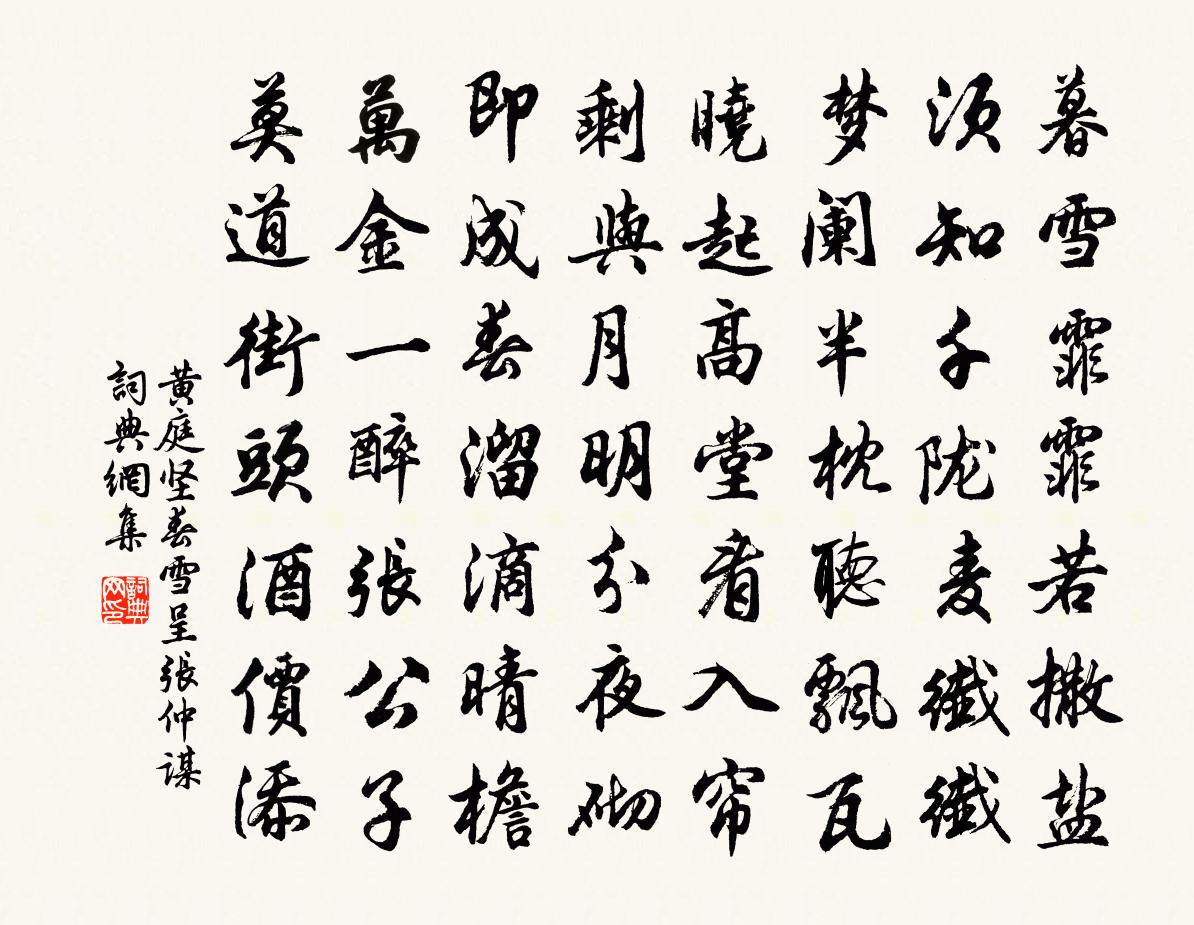 暮雪霏霏若撒盐
须知千陇麦纖纖
梦阑半枕聽飄瓦
曉起高堂看入帘
剩與月明分夜砌
即成春溜滴晴檐
萬金一醉張公子
莫道街頭酒價添
黃庭坚春雪呈張仲谋
詞典網集
詞典网印